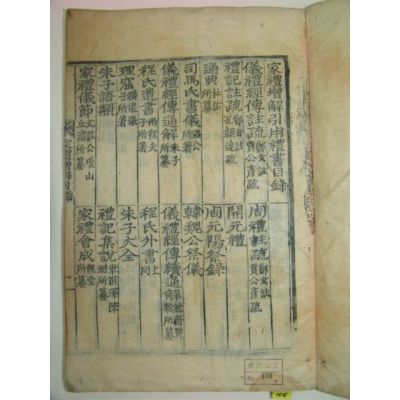 家禮增解引用禮書目錄
儀禮經傳註疏 鄭玄註 賈公彦疏 周禮註疏 鄭玄註 賈公彦疏
禮記註疏 鄭玄註 孔穎達疏 開元禮
通典 杜祐所纂 周元陽祭錄
司馬氏書儀 溫公所著 韓魏公祭儀
儀禮經傳通解 朱子所纂 儀禮經傳續通解 勉齋黃榦所纂
程氏遺書 兩程夫子所著 程氏外書 上同
理窟 橫渠張子所著 朱子大全
朱子語類 禮記集說 東滙澤陳澔所纂
家禮儀節 文莊公瓊山丘濬所纂 家禮會成 魏堂所纂
No. 400